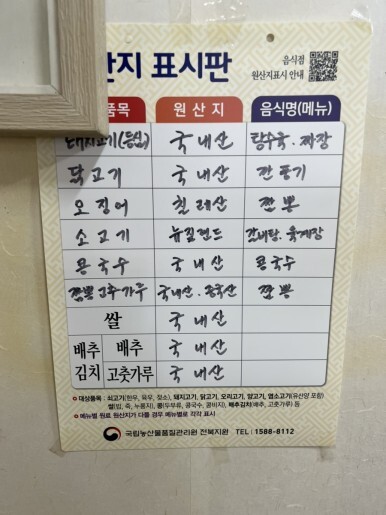 산지 표시판
음식점
원산지표시 안내
품목 원산지 음식명(메뉴)
돼지고기(등심) 국내산 탕수육·짜장
닭고기 국내산 깐풍기
오징어 칠레산 짬뽕
소고기 뉴질랜드 갈비탕·육개장
콩국수 국내산 콩국수
짬뽕고추가루 국내산·중국산 짬뽕
쌀 국내산
배추 배추 국내산
김치 고춧가루 국내산
• 대상품목 : 쇠고기(한우, 육우, 젖소), 돼지고기, 닭고기, 오리고기, 양고기, 염소고기(유산양 포함)
쌀(밥, 죽, 누룽지), 콩(두부류, 콩국수, 콩비지), 배추김치(배추, 고춧가루) 등
• 메뉴별 원료 원산지가 다를 경우 메뉴별로 각각 표시
국립농산물품질관리원 전북지원 TEL : 1588-8112